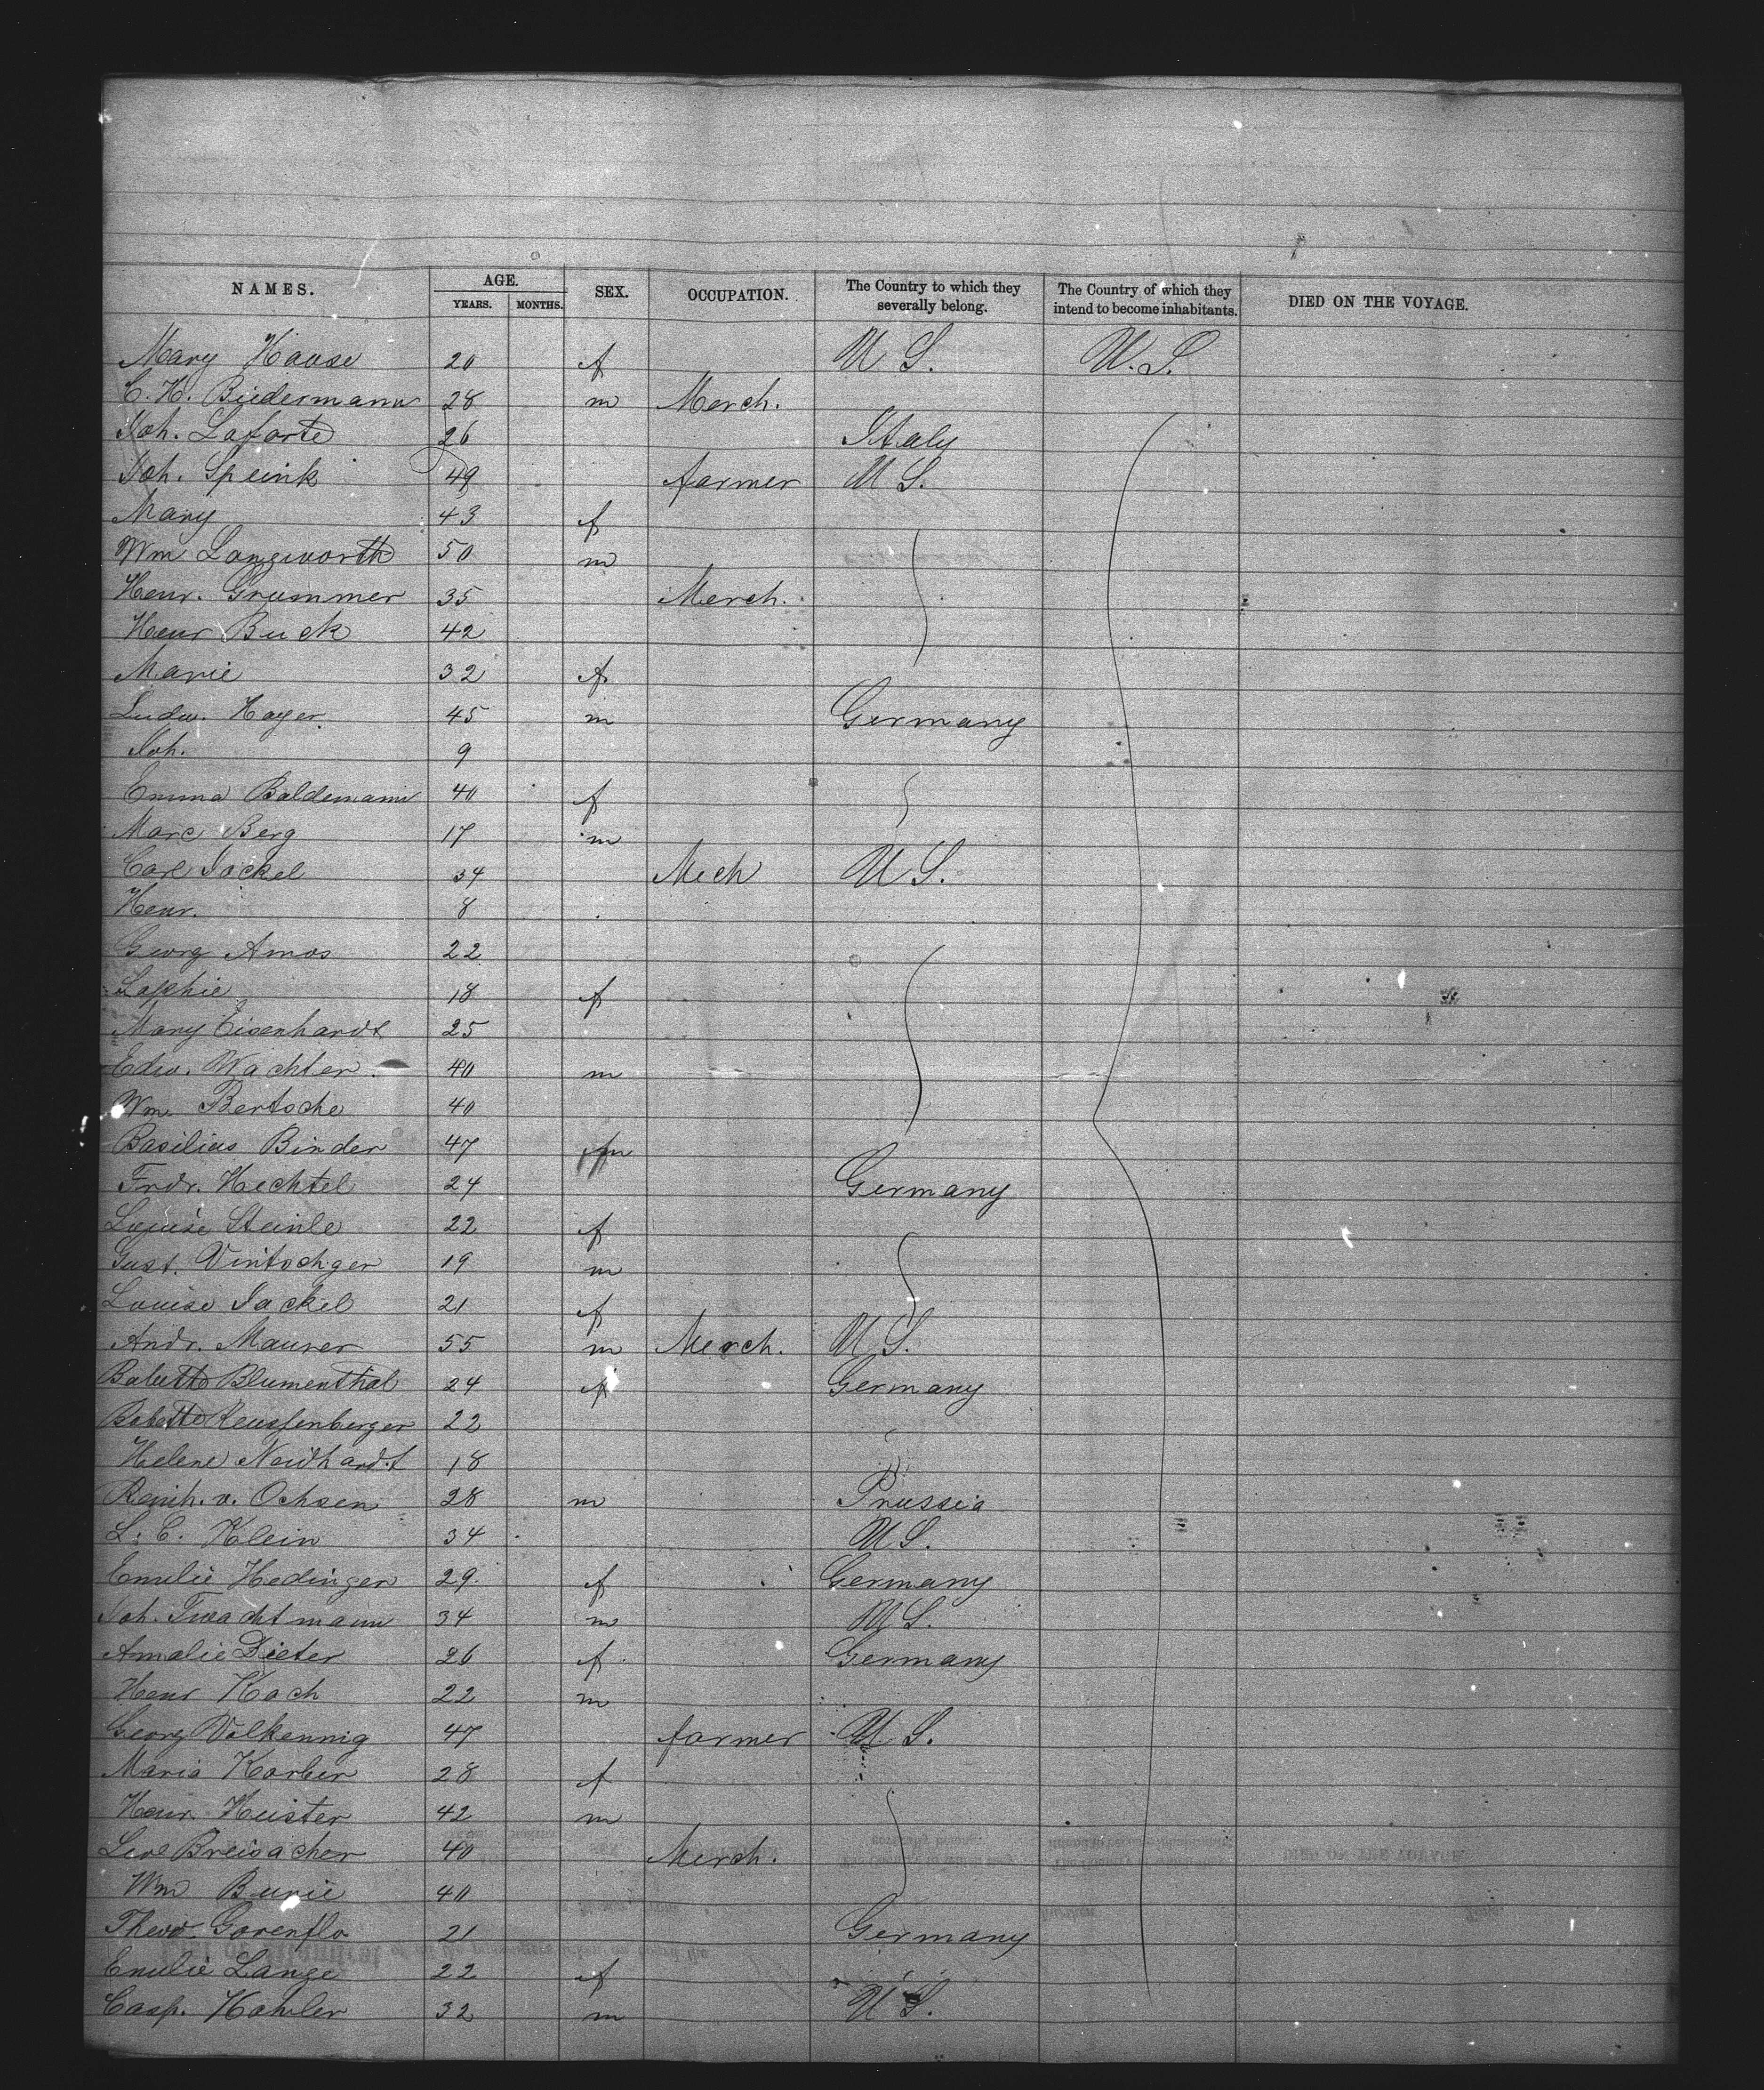 NAMES. AGE. SEX. OCCUPATION. The Country to which they severally belong. The Country of which they intend to become inhabitants. DIED ON THE VOYAGE.
YEARS. MONTHS.
Mary Hause 20 f U S. U. S.
C. H. Biedermann 28 m Merch.
Joh. Laforte 26 Italy
Joh. Speink 49 farmer U S.
Mary 43 f
Wm Langworth 50 m
Henr. Grummer 35 Merch.
Henr Buck 42
Marie 32 f
Ludw. Hayer 45 m Germany
Joh. 9
Emma Baldemann 40 f
Marc Berg 17 m
Carl Jackel 34 Mech U S.
Henr. 8
Georg Amos 22
Sophie 18 f
Mary Eisenhardt 25
Edw. Wachter 40 m
Wm. Bertsche 40
Basilius Binder 47 m
Frdr. Hechtel 24 Germany
Louise Steinle 22 f
Gust. Vintschger 19 m
Louise Jackel 21 f
Andr. Maurer 55 m Merch. U S.
Babette Blumenthal 24 f Germany
Babette Reussenberger 22
Helene Neidhardt 18
Reinh. v. Ochsen 28 m Prussia
L. C. Klein 34 U S.
Emilie Hedinger 29 f Germany
Joh. Twachtmann 34 m U S.
Amalie Dieter 26 f Germany
Henr Koch 22 m
Georg Volkennig 47 farmer U S.
Maria Korber 28 f
Henr. Heister 42 m
Breisacher 40 Merch.
Wm Burie 40
Theod. Gorenflo 21 Germany
Emilie Lange 22 f
Casp. Kohler 32 m U S.